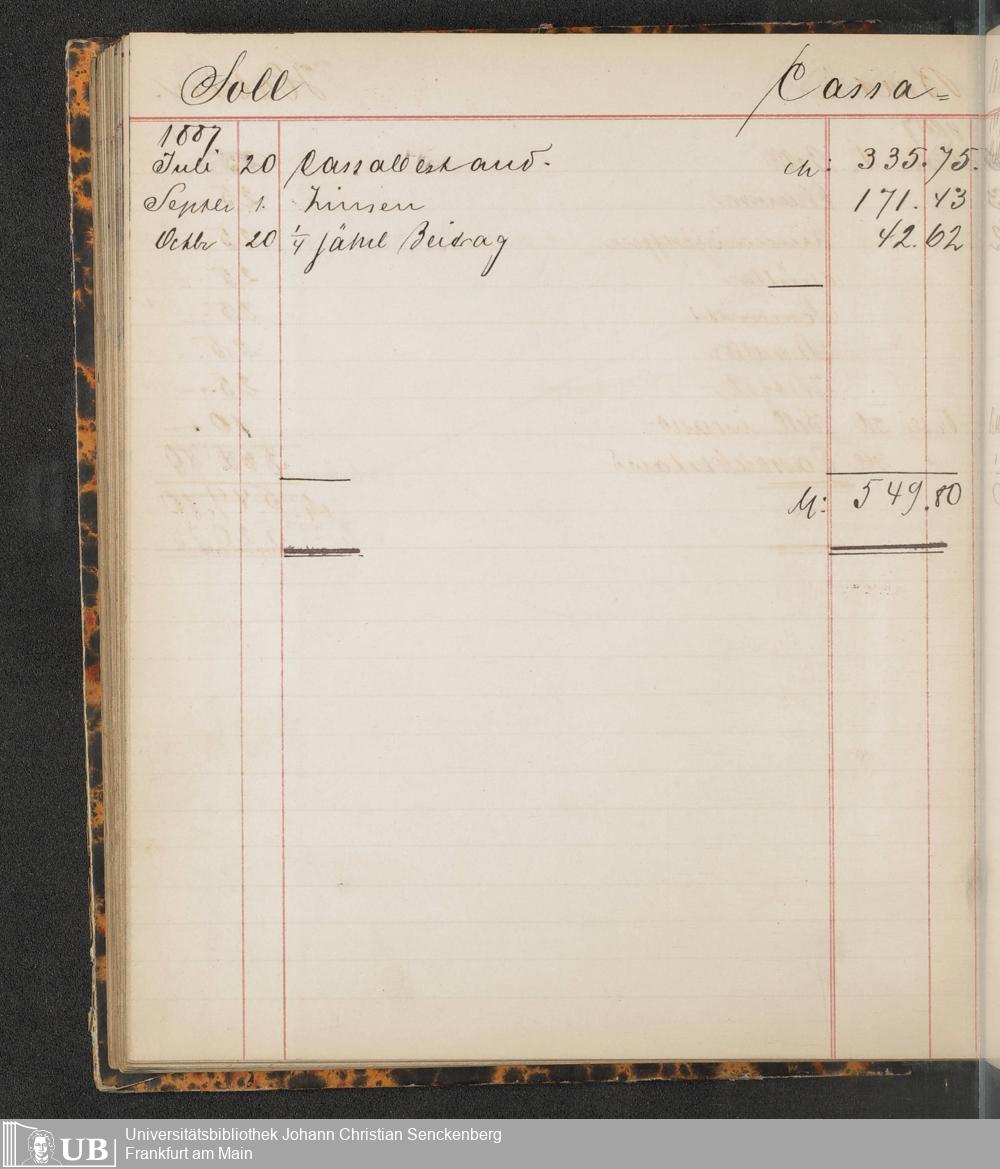 Soll Cassa=
1887
Juli 20 Cassabestand. M: 335.75.
Septer 1. Zinsen 171.43
Octbr 20 1/4 jährl Beitrag 42.62
M: 549.80
UB Universitätsbibliothek Johann Christian Senckenberg
Frankfurt am Main